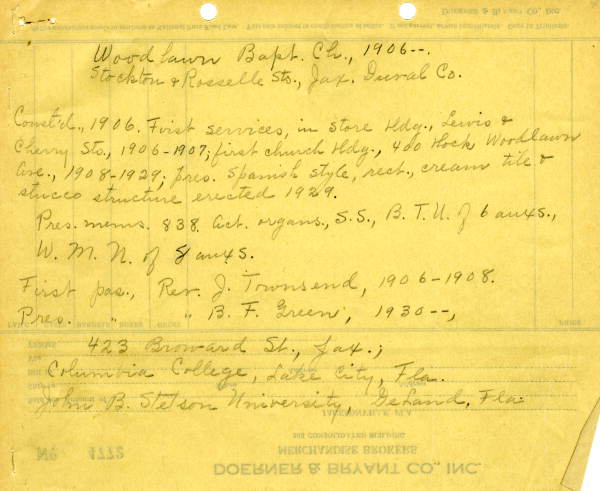 Woodlawn Bapt. Ch., 1906--.
Stockton & Rosselle Sts., Jax. Duval Co.
Const'd., 1906. First services, in store bldg., Lewis &
Cherry Sts., 1906-1907; first church bldg., 400 block Woodlawn
Ave., 1908-1929; pres. Spanish style, rect., cream tile &
stucco structure erected 1929.
Pres. mems. 838. Act. organs., S.S., B.T.U. of 6 auxs.,
W.M.U. of 8 auxs.
First pas., Rev. J. Townsend, 1906-1908.
Pres. " " B. F. Green, 1930--,
423 Broward St., Jax.;
Columbia College, Lake City, Fla.
John B. Stetson University, DeLand, Fla.
JACKSONVILLE, FLA.
CONSOLIDATED BUILDING
MERCHANDISE BROKERS
No 4772
DOERNER & BRYANT CO., INC.